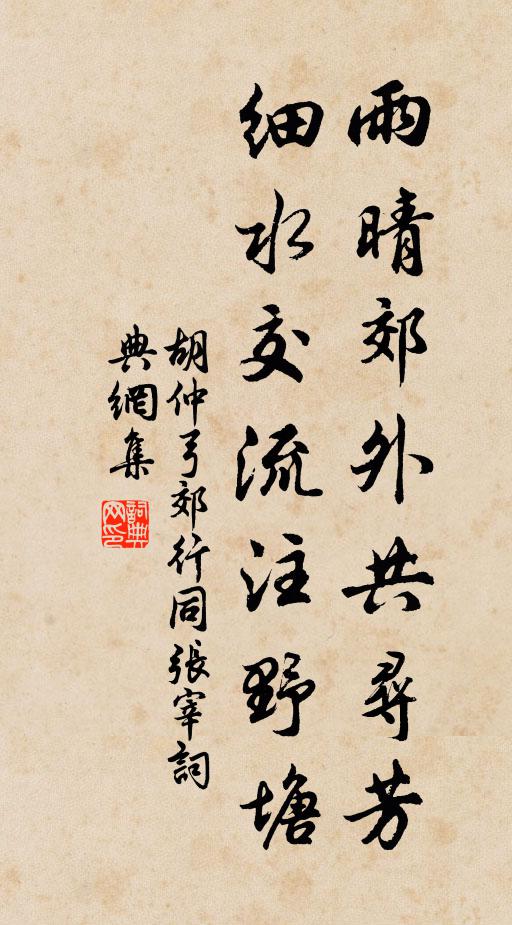 雨晴郊外共尋芳
细水交流注野塘
胡仲弓郊行同張宰詞
典網集
詞典網印